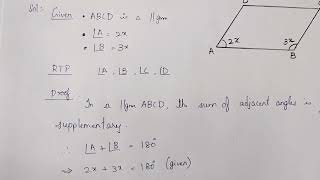 Sol:- Given • ABCD is a ||gm
• ∠A = 2x
• ∠B = 3x
RTP ∠A, ∠B, ∠C, ∠D
Proof
In a ||gm ABCD, the sum of adjacent angles is
supplementary.
∴ ∠A + ∠B = 180°
⇒ 2x + 3x = 180° (given)
D
2x
3x
A
B